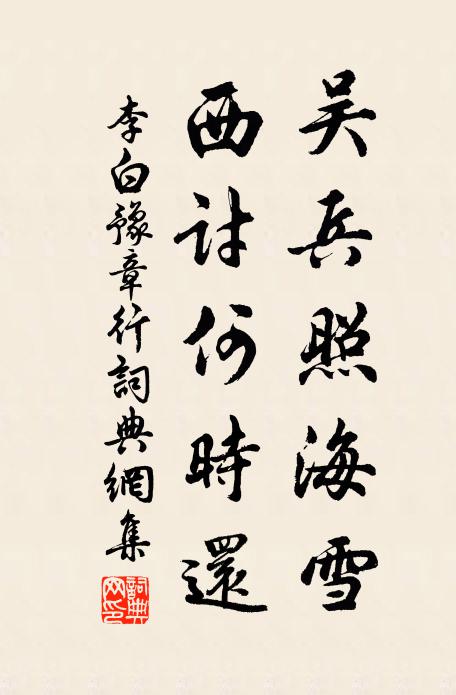 吴兵照海雪
西討何時還
李白豫章行詞典網集
詞典
网印